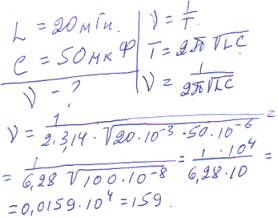 L = 20мГн.
C = 50мкФ
ν - ?
ν = 1/T.
T = 2π√LC
ν = 1/2π√LC
ν = 1/2·3,14·√20·10⁻³·50·10⁻⁶ =
= 1/6,28√100·10⁻⁸ = 1·10⁴/6,28·10 =
= 0,0159·10⁴ = 159.